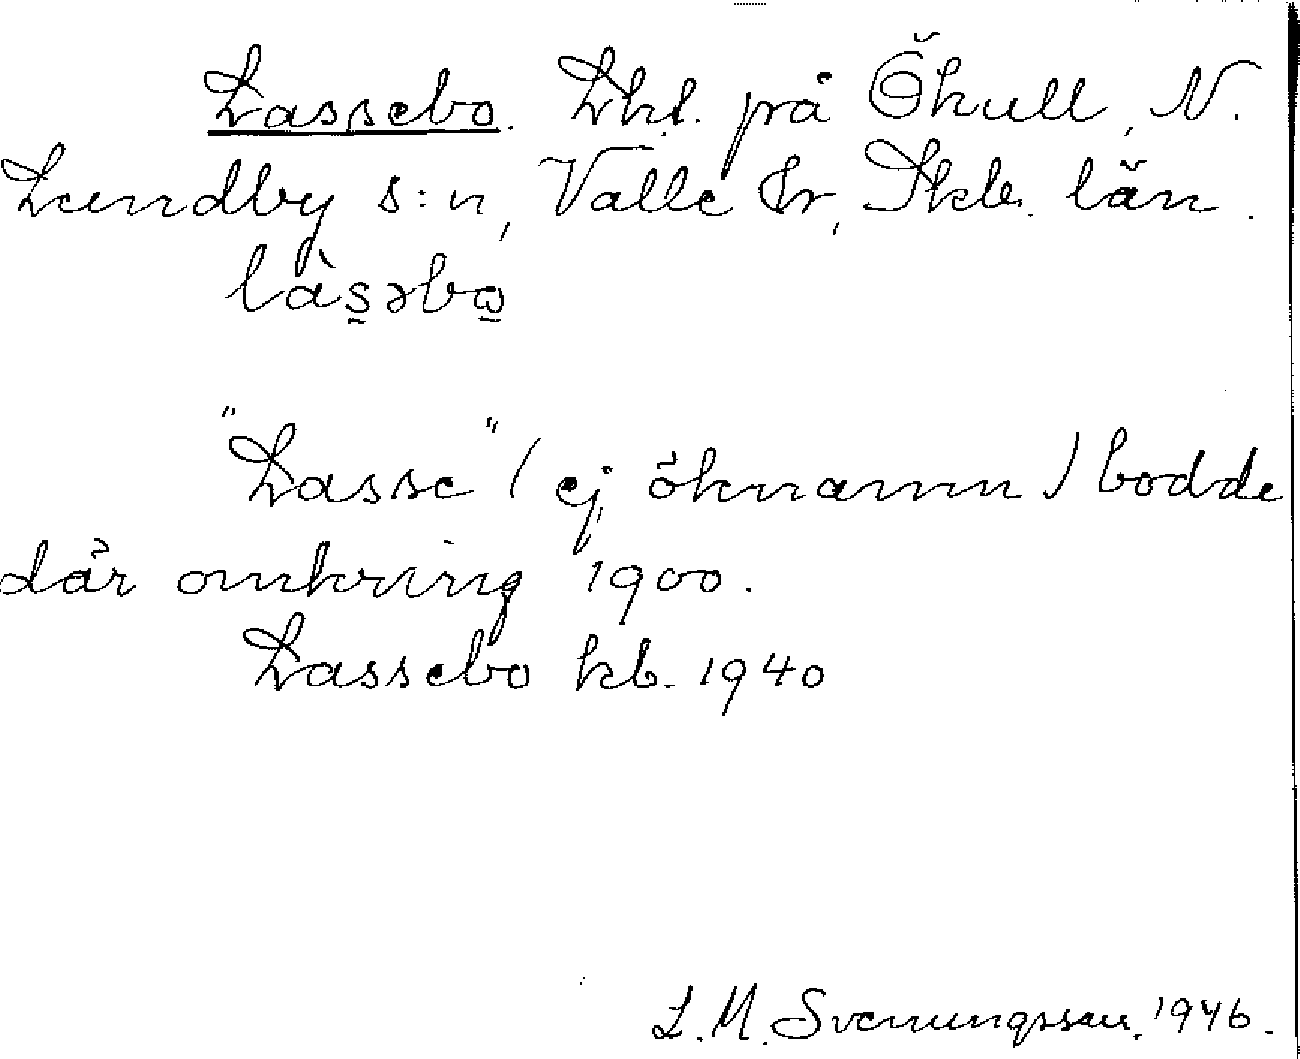 Lassebo. Lht. på Ökull, N.
Lundby s:n, Valle hr, Skb. län.
làs̠əbo̠
"Lasse" (ej öknamn) bodde
där omkring 1900.
Lassebo kb. 1940
L. M. Svenungsson. 1946.